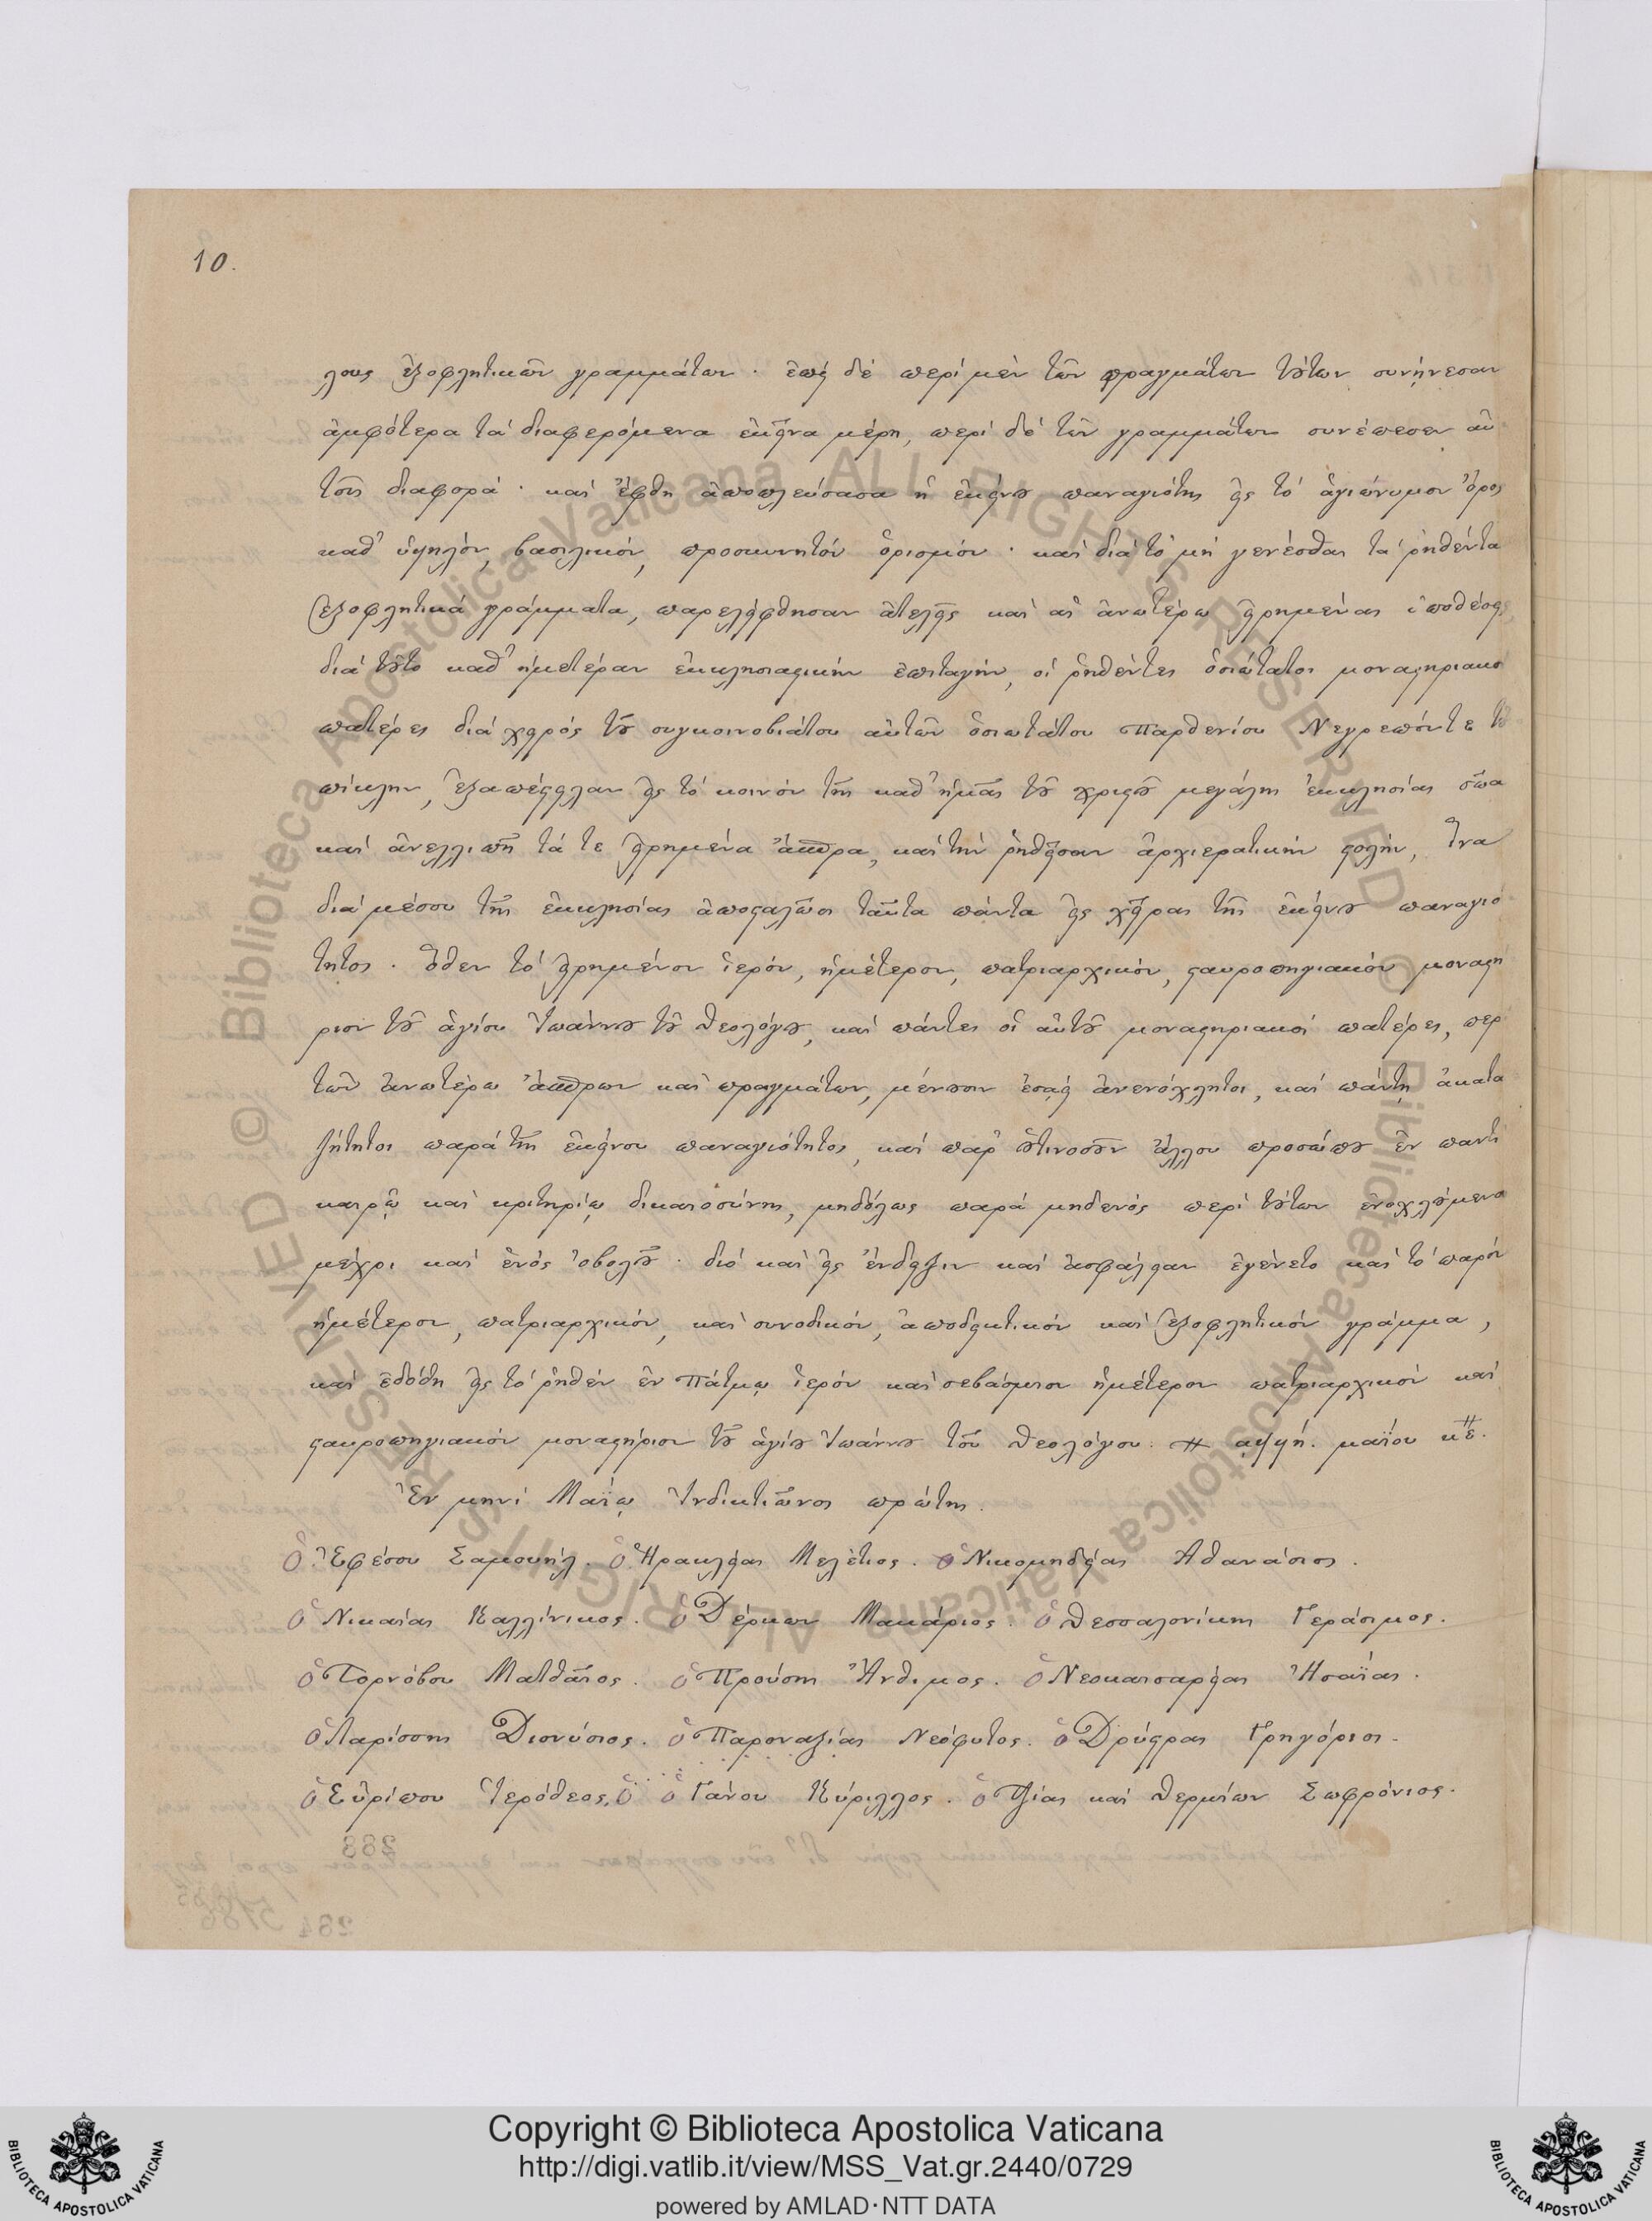 10.
λους ἐξοφλητικῶν γραμμάτων· ἐπεὶ δὲ περὶ μὲν τῶν πραγμάτων τούτων συνῄνεσαν
ἀμφότερα τὰ διαφερόμενα ἐκεῖνα μέρη, περὶ δὲ τῶν γραμμάτων συνέπεσεν αὐ
τοῖς διαφορά· καὶ ἔφθη ἀποπλεύσασα ἡ ἐκείνου παναγιότης εἰς τὸ ἁγιώνυμον ὄρος
καθ' ὑψηλὸν, βασιλικὸν, προσκυνητὸν ὁρισμόν· καὶ διὰ τὸ μὴ γενέσθαι τὰ ῥηθέντα
ἐξοφλητικὰ γράμματα, παρελείφθησαν ἀτελεῖς καὶ αἱ ἀνωτέρω εἰρημέναι ὑποθέσεις,
διὰ τοῦτο καθ' ἡμετέραν ἐκκλησιαστικὴν ἐπιταγὴν, οἱ ῥηθέντες ὁσιώτατοι μοναστηριακοὶ
πατέρες διὰ χειρὸς τοῦ συγκοινοβιάτου αὐτῶν ὁσιωτάτου Παρθενίου Νεγρεπόντε τοὐ
πίκλην, ἐξαπέστειλαν εἰς τὸ κοινὸν τῆς καθ' ἡμᾶς τοῦ χριστοῦ μεγάλης ἐκκλησίας σῶα
καὶ ἀνελλιπῆ τά τε εἰρημένα ἄσπρα, καὶ τὴν ῥηθεῖσαν ἀρχιερατικὴν στολήν, ἵνα
διὰ μέσου τῆς ἐκκλησίας ἀποσταλῶσι ταῦτα πάντα εἰς χεῖρας τῆς ἐκείνου παναγιό
τητος. ὅθεν τὸ εἰρημένον ἱερόν, ἡμέτερον, πατριαρχικόν, σταυροπηγιακὸν μοναστή
ριον τοῦ ἁγίου Ἰωάννου τοῦ θεολόγου, καὶ πάντες οἱ αὐτοῦ μοναστηριακοὶ πατέρες, περὶ
τῶν ἀνωτέρω ἄσπρων καὶ πραγμάτων, μένωσιν ἐσαεὶ ἀνενόχλητοι, καὶ πάντῃ ἀκατα
ζήτητοι παρὰ τῆς ἐκείνου παναγιότητος, καὶ παρ' οὑτινοσοῦν ἄλλου προσώπου ἐν παντὶ
καιρῷ καὶ κριτηρίῳ δικαιοσύνης, μηδόλως παρὰ μηδενὸς περὶ τούτων ἐνοχλούμενοι
μέχρι καὶ ἑνὸς ὀβολοῦ· διὸ καὶ εἰς ἔνδειξιν καὶ ἀσφάλειαν ἐγένετο καὶ τὸ παρὸν
ἡμέτερον, πατριαρχικόν, καὶ συνοδικόν, ἀποδεικτικὸν καὶ ἐξοφλητικὸν γράμμα,
καὶ ἐδόθη εἰς τὸ ῥηθὲν ἐν Πάτμῳ ἱερὸν καὶ σεβάσμιον ἡμέτερον πατριαρχικὸν καὶ
σταυροπηγιακὸν μοναστήριον τοῦ ἁγίου Ἰωάννου τοῦ θεολόγου. αψϟή. μαΐου κε.
Ἐν μηνὶ Μαΐῳ Ἰνδικτιῶνος πρώτης.
Ὁ Ἐφέσου Σαμουήλ. ὁ Ἡρακλείας Μελέτιος. ὁ Νικομηδείας Ἀθανάσιος.
ὁ Νικαίας Καλλίνικος. ὁ Δέρκων Μακάριος. ὁ Θεσσαλονίκης Γεράσιμος.
ὁ Τορνόβου Ματθαῖος. ὁ Προύσης Ἄνθιμος. ὁ Νεοκαισαρείας Ἠσαΐας.
ὁ Λαρίσσης Διονύσιος. ὁ Παροναξίας Νεόφυτος. ὁ Δρύστρας Γρηγόριος.
ὁ Εὐρίπου Ἱερόθεος. ὁ ὁ Γάνου Κύριλλος. ὁ Τζίας καὶ Θερμίων Σωφρόνιος.
283
284
Biblioteca Apostolica Vaticana ALL RIGHTS RESERVED © Biblioteca Apostolica Vaticana ALL RIGHTS RESERVED ©
Copyright © Biblioteca Apostolica Vaticana
http://digi.vatlib.it/view/MSS_Vat.gr.2440/0729
powered by AMLAD·NTT DATA
BIBLIOTECA APOSTOLICA VATICANA
BIBLIOTECA APOSTOLICA VATICANA